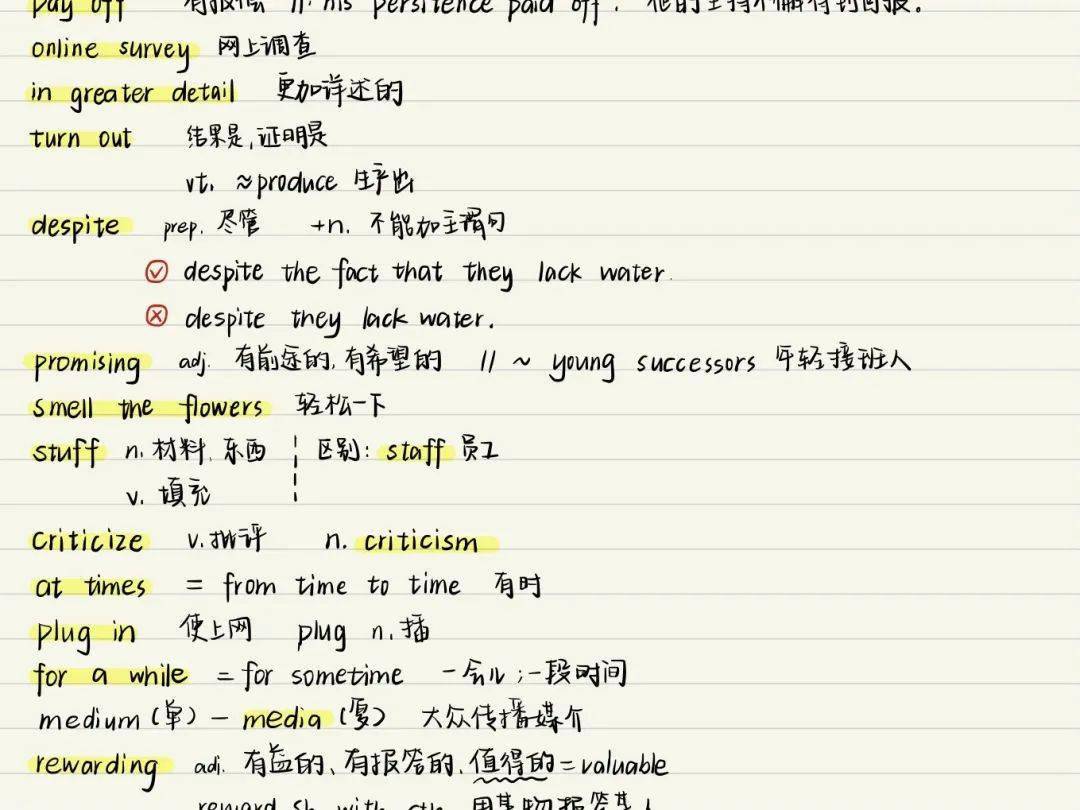 pay off 有报偿 // his persitence paid off. 他的坚持不懈得到回报.
online survey 网上调查
in greater detail 更加详述的
turn out 结果是,证明是
vt. ≈produce 生产出
despite prep. 尽管 +n. 不能加主谓句
despite the fact that they lack water.
despite they lack water.
promising adj. 有前途的,有希望的 // ~ young successors 年轻接班人
smell the flowers 轻松一下
stuff n.材料、东西 区别: staff 员工
v. 填充
criticize v.批评 n. criticism
at times = from time to time 有时
plug in 使上网 plug n.插
for a while = for sometime 一会儿;一段时间
medium(单) - media(复) 大众传播媒介
rewarding adj. 有益的、有报答的、值得的=valuable
reward sb with sth 用某物报答某人